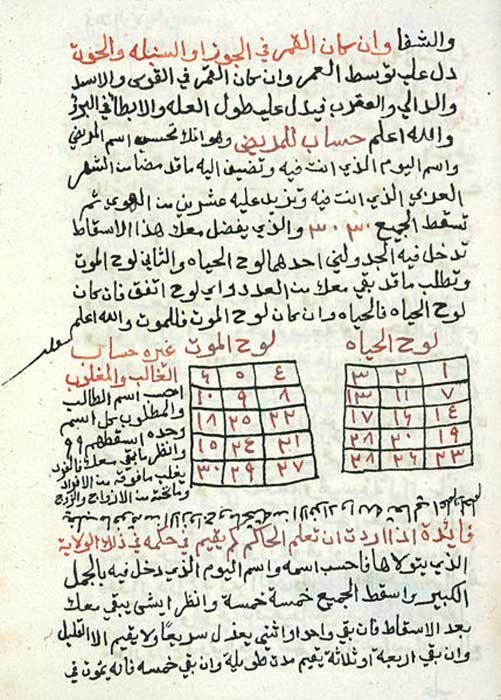 والشفا وان كان القمر في الجوزا والسنبله والحوت
دل علي توسط العمر وان كان القمر في القوس والاسد
والدالي والعقرب فيدل علي طول العله والابطا في البرئ
والله اعلم حساب للمريض وهو انك تحسب اسم المريض
واسم اليوم الذي انت فيه وتضيف اليه ما قد مضا من الشهر
العربي الذي انت فيه وتزيد عليه عشرين من الهوي ثم
تسقط الجميع ٣٠ ٣٠ والذي يفضل معك هذا الاسقاط
تدخل فيه الجدولين احدهما لوح الحياه والثاني لوح الموت
وتطلب ما قد بقي معك من العدد واي لوح اتفق فان كان
لوح الحياه فالحياه وان كان لوح الموت فللموت والله اعلم
لوح الحياه
١ ٢ ٣
٧ ١١ ١٣
١٤ ١٦ ١٧
١٩ ٢٠ ٢٨
٢٣ ٢٦ ٢٨
لوح الموت
٤ ٥ ٦
٨ ٩ ١٠
٢٢ ٢٥ ١٨
٢١ ٢٤ ١٥
٢٧ ٢٩ ٣٠
غيره حساب
الغالب والمغلوب
احسب اسم الطالب
والمطلوب كل اسم
وحده اسقطهم ٩ ٩
وانظر ما بقي معك فالفرد
يغلب ما فوقه من الافراد
وما تحته من الازواج والزوج
فايدة اذا اردت ان تعلم الحاكم كم يقيم في حكمه في ذلك الولاية
الذي يتولاها فاحسب اسمه واسم اليوم الذي دخل فيه بالجمل
الكبير واسقط الجميع خمسة خمسة وانظر ايشي يبقي معك
بعد الاسقاط فان بقي واحد او اثنين يعزل سريعا ولا يقيم الا القليل
وان بقي اربعة او ثلاثة يقيم مدة طويلة وان بقي خمسه فانه يموت في